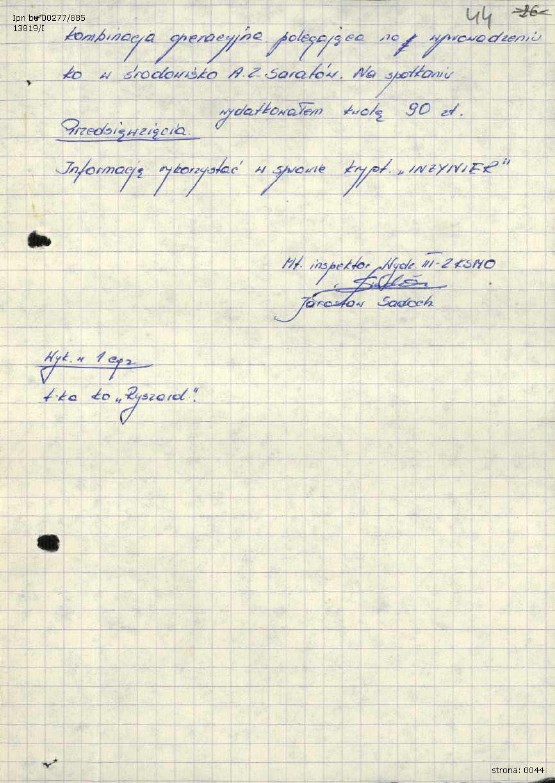 Ipn bu 00277/885
13819/I
44 26
kombinacja operacyjna polegająca na wprowadzeniu
ko w środowisko A.Z. Saratów. Na spotkaniu
wydatkowałem kwotę 90 zł.
Przedsięwzięcia.
Informację wykorzystać w sprawie krypt. „INŻYNIER"
Mł. inspektor Wydz. III-2 KSMO
Jarosław Sadoch
Wyk. w 1 egz.
t-ka ko „Ryszard".
strona: 0044